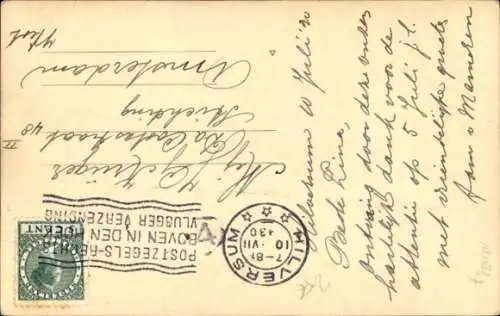 Hilversum 10 Juli '30
Beste Lina,
Ontvang door deze onder
hartelijk dank voor de
attentie op 5 Juli j.l.
met vriendelijke groete
fam v Mameren
Mej. L. Krüger
Da Costastraat 48 II
Stichting
Amsterdam
HILVERSUM
7-8
10·VII
430
POSTZEGELS-RECHTS
BOVEN IN DEN HOEK
VLUGGER VERZENDING
CENT